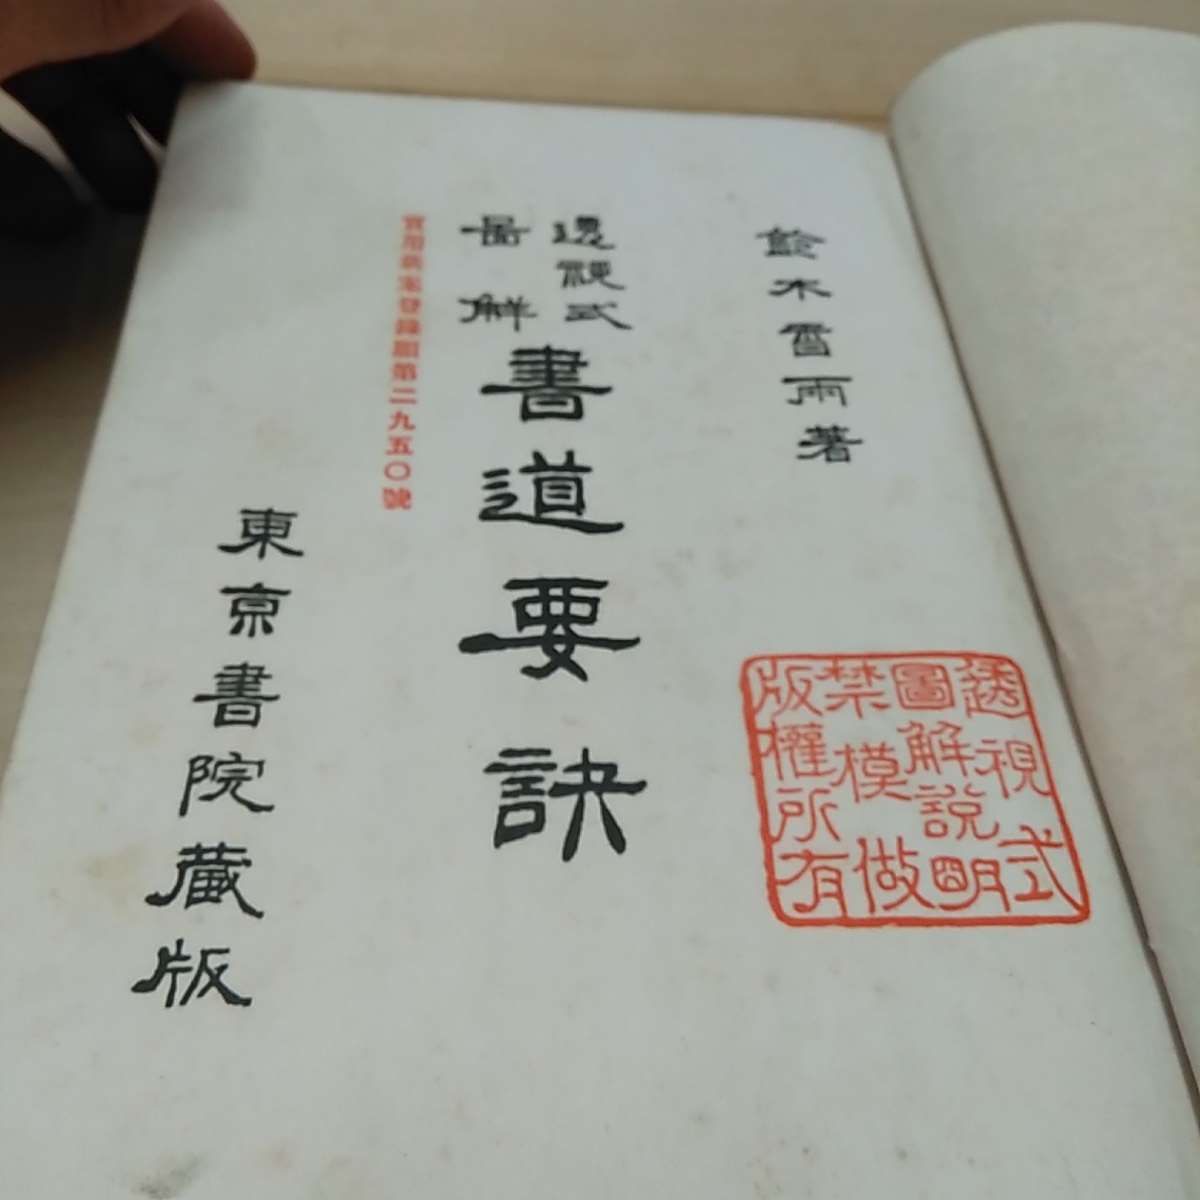 鈴木香雨著
透視式
圖解
書道要訣
實用新案登錄願第二九五〇號
東京書院藏版
透視式
圖解說明
禁模做
版權所有